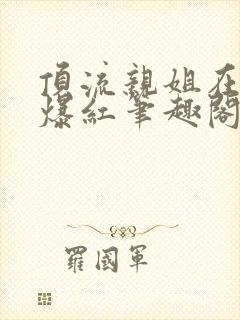 頂流親姐在
爆紅筆趣閣
羅國軍